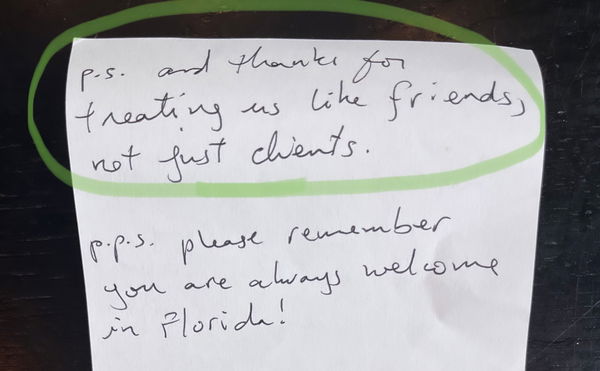 p.s. and thanks for
treating us like friends,
not just clients.
p.p.s. please remember
you are always welcome
in Florida!